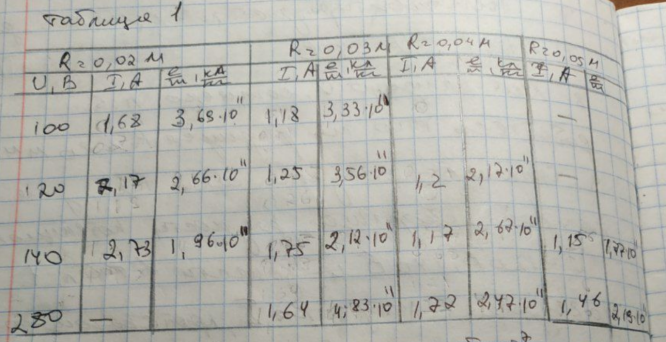 Таблица 1
R=0,02 м R=0,03м R=0,04м R=0,05м
U, В I, А e/m, кл/кг I, А e/m, кл/кг I, А e/m, кл/кг I, А e/m
100 1,68 3,68·10¹¹ 1,18 3,33·10¹¹ —
120 2,17 2,66·10¹¹ 1,25 3,56·10¹¹ 1,2 2,17·10¹¹ —
140 2,73 1,96·10¹¹ 1,75 2,12·10¹¹ 1,17 2,67·10¹¹ 1,15 1,77·10
280 — 1,64 4,83·10¹¹ 1,72 2,47·10¹¹ 1,46 2,19·10